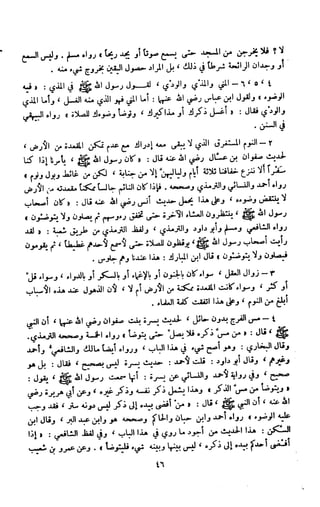 لا ؟ فلا يخرجن من المسجد حتى يسمع صوتاً أو يجد ريحاً » رواه مسلم . وليس السمع
أو وجدان الرائحة شرطاً في ذلك ، بل المراد حصول اليقين بخروج شيء منه .
٤ ، ٥ ، ٦ – المني والمذي والودي ، لقول رسول الله ﷺ في المذي : « فيه
الوضوء » ولقول ابن عباس رضي الله عنهما : أما المني فهو الذي منه الغسل ، وأما المذي
والودي فقال : « اغسل ذكرك أو مذاكيرك ، وتوضأ وضوءك للصلاة » رواه البيهقي
في السنن .
٢ – النوم المستغرق الذي لا يبقى معه إدراك مع عدم تمكن المقعدة من الأرض ،
لحديث صفوان بن عسال رضي الله عنه قال : « كان رسول الله ﷺ ، يأمرنا إذا كنا
سفراً ألا ننزع خفافنا ثلاثة أيام ولياليهن إلا من جنابة ، لكن من غائط وبول ونوم »
رواه أحمد والنسائي والترمذي وصححه . فإذا كان النائم جالساً ممكناً مقعدته من الأرض
لا ينتقض وضوءه ، وعلى هذا يحمل حديث أنس رضي الله عنه قال : « كان أصحاب
رسول الله ﷺ ، ينتظرون العشاء الآخرة حتى تخفق رءوسهم ثم يصلون ولا يتوضئون »
رواه الشافعي ومسلم وأبو داود والترمذي ، ولفظ الترمذي من طريق شعبة : « لقد
رأيت أصحاب رسول الله ﷺ ، يوقظون للصلاة حتى لأسمع لأحدهم غطيطاً ، ثم يقومون
فيصلون ولا يتوضئون » قال ابن المبارك : هذا عندنا وهم جلوس .
٣ – زوال العقل ، سواء كان بالجنون أو بالإغماء أو بالسكر أو بالدواء ، وسواء قل
أو كثر ، وسواء كانت المقعدة ممكنة من الأرض أم لا ، لأن الذهول عند هذه الأسباب
أبلغ من النوم ، وعلى هذا اتفقت كلمة العلماء .
٤ – مس الفرج بدون حائل ، لحديث بسرة بنت صفوان رضي الله عنها ، أن النبي
ﷺ ، قال : « من مس ذكره فلا يصل حتى يتوضأ » رواه الخمسة وصححه الترمذي .
وقال البخاري : وهو أصح شيء في هذا الباب ، ورواه أيضاً مالك والشافعي وأحمد
وغيرهم ، وقال أبو داود : قلت لأحمد : حديث بسرة ليس بصحيح ، فقال : بل هو
صحيح ، وفي رواية لأحمد والنسائي عن بسرة : أنها سمعت رسول الله ﷺ ، يقول :
« ويتوضأ من مس الذكر » وهذا يشمل ذكر نفسه وذكر غيره ، وعن أبي هريرة رضي
الله عنه ، أن النبي ﷺ ، قال : « من أفضى بيده إلى ذكر ليس دونه ستر ، فقد وجب
عليه الوضوء » رواه أحمد وابن حبان والحاكم وصححه هو وابن عبد البر ، وقال ابن
السكن : هذا الحديث من أجود ما روي في هذا الباب ، وفي لفظ الشافعي : « إذا
أفضى أحدكم بيده إلى ذكره ، ليس بينها وبينه شيء فليتوضأ » . وعن عمرو بن شعيب
٤٦